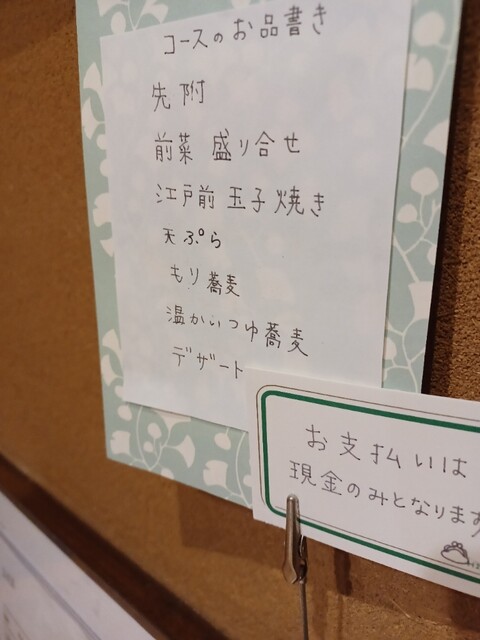 コースのお品書き
先附
前菜 盛り合せ
江戸前 玉子焼き
天ぷら
もり蕎麦
温かいつゆ蕎麦
デザート
お支払いは
現金のみとなります